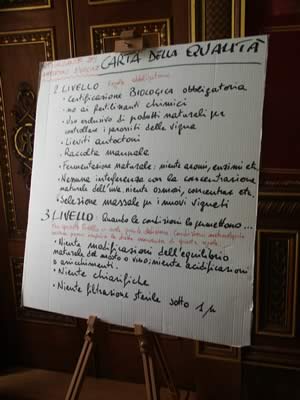 CARTA DELLA QUALITÀ
2 LIVELLO regole obbligatorie
• Certificazione Biologica obbligatoria
• no ai fertilizzanti chimici
• Uso esclusivo di prodotti naturali per
controllare i parassiti della vigna
• Lieviti autoctoni
• Raccolta manuale
• Fermentazione naturale; niente aromi, enzimi etc.
• Nessuna interferenza con la concentrazione
naturale dell'uva, niente osmosi, concentraz etc.
• Selezione massale per i nuovi vigneti
3 LIVELLO: Quando le condizioni lo permettono...
• Niente modificazioni dell'equilibrio
naturale del mosto o vino: niente acidificazioni
o arricchimenti.
• Niente chiarifiche
• Niente filtrazione sterile sotto 1 µ